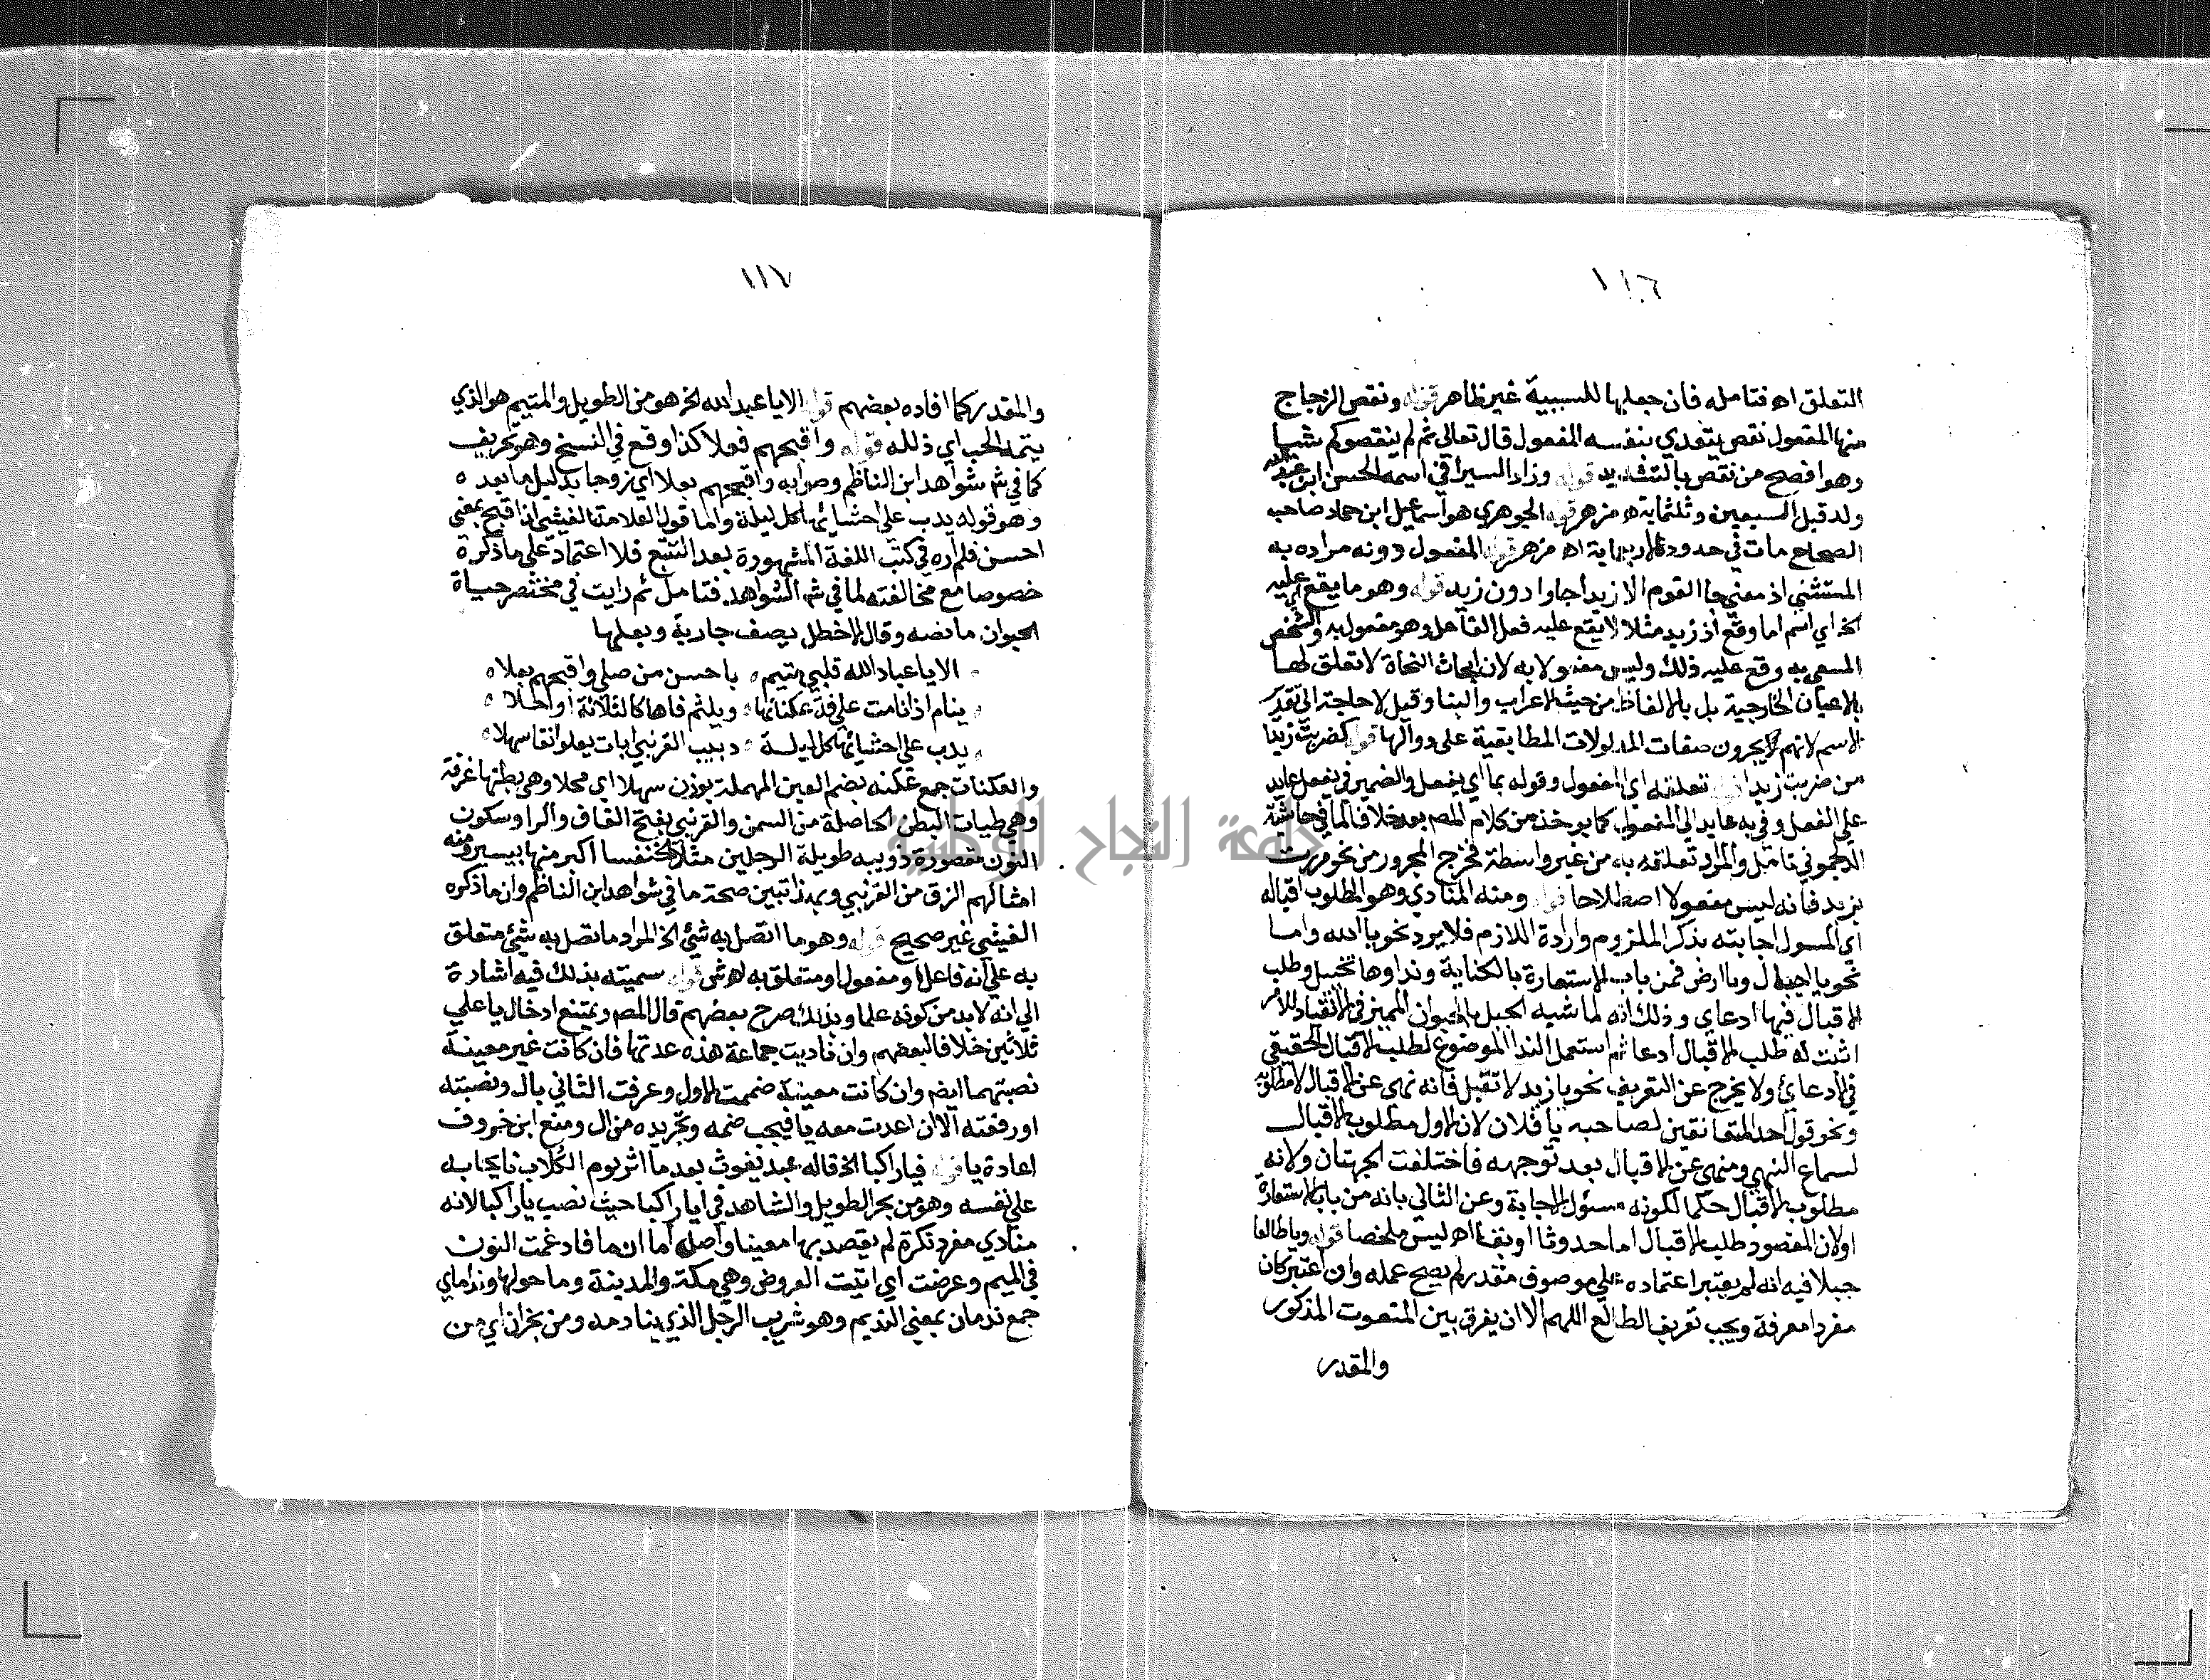 ١١٦
التعلق اه فتامله فان جعلها للسببية غير ظاهر قوله ونقص الزجاج
منها المفعول نقص يتعدي بنفسه المفعول قال تعالي ثم لم ينقصوكم شيا
وهو افصح من نقص بالتشديد قوله وزاد السيرافي اسمه الحسن ابن عبد الله
ولد قبل السبعين وثلثماية اه مزهر قوله الجوهري هو اسماعيل ابن حماد صاحب
الصحاح مات في حدود الاربعماية اه مزهر قوله المفعول دونه مراده به
المستثني اذ معني جا القوم الا زيدا جاوا دون زيد قوله وهو ما يقع عليه
الخ اي اسم اما وقع اذ زيد مثلا لا يقع عليه فعل الفاعل وهو مفعول به والشخص
المسمي به وقع عليه ذلك وليس مفعولا به لان ابحاث النحاة لا تعلق لها
بالاعيان الخارجية بل بالالفاظ من حيث الاعراب والبنا وقيل لا حاجة الي تقدير
الاسم لانهم يجرون صفات المدلولات المطابقية علي دوالها قوله كضربت زيدا
من ضربت زيدا قوله تعلقه اي المفعول وقوله بما اي بفعل والضمير في يفعل عايد
علي الفعل وفي به عايد الي المفعول كما يوخذ من كلام المص بعد خلافا لما في حاشية
الدلجموني تامل والمراد تعلقه به من غير واسطة فخرج المجرور من نحو مررت
بزيد فانه ليس مفعولا اصطلاحا قوله ومنه المنادي وهو المطلوب اقباله
اي المسول اجابته بذكر الملزوم وارادة اللازم فلا يرد نحو يا الله واما
نحو يا جبال ويا ارض فمن باب الاستعارة بالكناية ونداوها تخييل وطلب
الاقبال فيها ادعاي وذلك انه لما شبه الجبل بالحيوان المميز في الانقياد للامر
اثبت له طلب الاقبال ادعا ثم استعمل الندا الموضوع لطلب الاقبال الحقيقي
في الادعائ ولا يخرج عن التعريف نحو يا زيد لا تقبل فانه نهي عن الاقبال لا مطلوبه
ونحو قول احد المتعانقين لصاحبه يا فلان لان الاول مطلوب الاقبال
لسماع النهي ومنهي عن الاقبال بعد توجهه فاختلفت الجهتان ولانه
مطلوب الاقبال حكما لكونه مسئول الاجابة وعن الثاني بانه من باب الاستعارة
اولان المقصود طلب الاقبال اما حدوثا او بقاا اه ليس ملخصا قوله ويا طالعا
جبلا فيه انه لم يعتبر اعتماده علي موصوف مقدر لم يصح عمله وان اعتبر كان
مفردا معرفة ويجب تعريف الطالع اللهم الا ان يفرق بين المنعوت المذكور
والمقدر
١١٧
والمقدر كما افاده بعضهم قوله الا يا عبد الله الخ هو من الطويل والمتيم هو الذي
يتمه الحب اي ذلله قوله واقبحهم فعلا كذا وقع في النسخ وهو تحريف
كما في ش شواهد ابن الناظم وصوابه واقبحهم بعلا اي زوجا بدليل ما بعده
وهو قوله يدب علي احشائها كل ليلة واما قول العلامة الفيشي ان اقبح بمعني
احسن فلم اره في كتب اللغة المشهورة بعد التتبع فلا اعتماد علي ما ذكره
خصوصا مع مخالفته لما في ش الشواهد فتامل ثم رايت في مختصر حياة
الحيوان ما نصه وقال الاخطل يصف جارية وبعلها
الا يا عباد الله قلبي متيم باحسن من صلي واقبحهم بعلا
ينام اذا نامت علي عكناتها ويلثم فاها كالثلاثة او احلا
يدب علي احشائها كل ليلة دبيب القرنبي بات يعلو انقا سهلا
والعكنات جمع عكنه بضم العين المهملة بوزن سهلا اي محلا وهي بطنها غرفة
وهي طيات البطن الحاصلة من السمن والقرنبي بفتح القاف والرا وسكون
النون مقصورة دويبه طويلة الرجلين مثل الخنفسا اكبر منها بيسير ومنه
امثالهم الزق من القرنبي وبهذا تبين صحة ما في شواهد ابن الناظم وان ما ذكره
الفيشي غير صحيح قوله وهو ما اتصل به شئ الخ المراد ما تصل به شئ متعلق
به علي انه فاعل او مفعول او متعلق به اه ش قوله سميته بذلك فيه اشارة
الي انه لا بد من كونه علما وبذلك صرح بعضهم قال المص ويمتنع ادخال يا علي
ثلاثين خلافا لبعضهم وان ناديت جماعة هذه عدتها فان كانت غير معينة
نصبتهما ايضا وان كانت معينة ضممت الاول وعرفت الثاني بال ونصبته
او رفعته الا ان اعدت معه يا فيجب ضمه وتجريده من ال ومنع ابن خروف
اعادة يا قوله فيا راكبا الخ قاله عبد يغوث بعد ما اثر يوم الكلاب نايحا به
علي نفسه وهو من بحر الطويل والشاهد في ايا راكبا حيث نصب يا راكبا لانه
منادي مفرد نكرة لم يقصد بها معينا واصله اما ان ما فادغمت النون
في الميم وعرضت اي اتيت العروض وهي مكة والمدينة وما حولها ونداماي
جمع ندمان بمعني النديم وهو شريب الرجل الذي ينادمه ومن نجران اي من
جامعة النجاح الوطنية